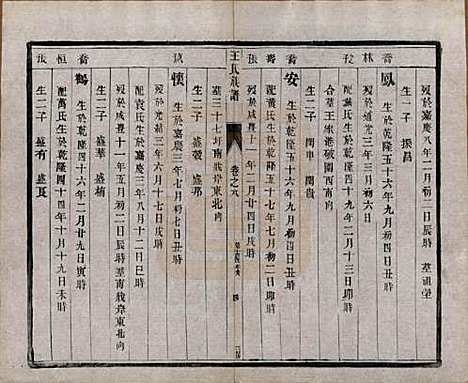 歿於嘉慶八年二月初二日辰時 墓祖塋
生一子 振昌
喬林 鳳 生於乾隆五十六年九月初四日丑時
歿於道光三年三月十三日卯時
配施氏生於乾隆五十六年九月初二日
合墓王家港破圍西南向
生二子 開申 開貴
喬壽 安 生於乾隆五十六年九月初四日丑時
配黃氏生於乾隆五十七年七月初二日卯時
歿於咸豐十一年二月廿四日戌時
王氏族譜 卷之六 四
墓三十七圩南戤岸東北向
生二子 盛發 盛邦
懷 生於嘉慶三年七月初七日丑時
歿於光緒三年六月十七日戌時
配袁氏生於嘉慶三年八月十二日巳時
歿於咸豐十一年五月初二日辰時墓南戤岸東北向
生二子 盛華 盛楠
喬恒 鶴 生於乾隆四十六年二月廿九日寅時
配萬氏生於乾隆四十四年十月十九日未時
生二子 盛有 盛良